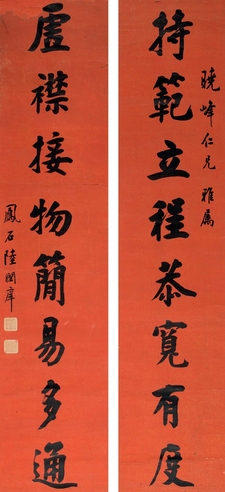 曉峰仁兄雅屬
持範立程恭寬有度
虛襟接物簡易多通
鳳石陸潤庠